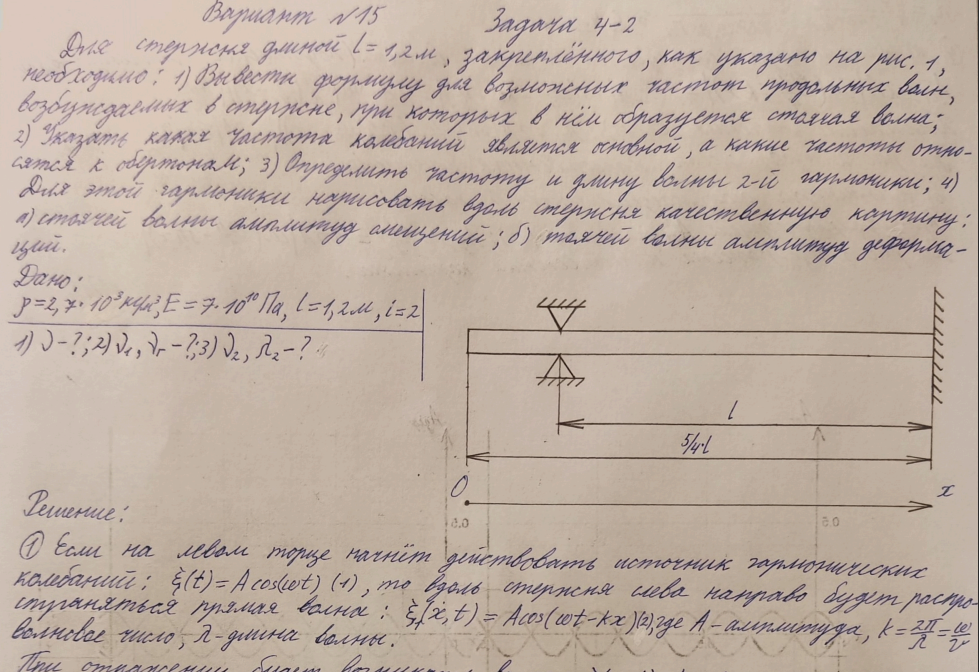 Вариант №15 Задача 4-2
Для стержня длиной l = 1,2 м, закреплённого, как указано на рис. 1,
необходимо: 1) Вывести формулу для возможных частот продольных волн,
возбуждаемых в стержне, при которых в нём образуется стоячая волна;
2) Указать какая частота колебаний является основной, а какие частоты отно-
сятся к обертонам; 3) Определить частоту и длину волны 2-й гармоники; 4)
Для этой гармоники нарисовать вдоль стержня качественную картину:
а) стоячей волны амплитуд смещений; б) тоячей волны амплитуд деформа-
ций.
Дано:
ρ=2,7·10³ кг/м³, E=7·10¹⁰ Па, l=1,2 м, i=2
1) ν-?; 2) ν₁, νᵢ-?; 3) ν₂, λ₂-?
l
5/4·l
0 x
Решение:
① Если на левом торце начнёт действовать источник гармонических
колебаний: ξ(t) = A cos(ωt) (1), то вдоль стержня слева направо будет распро-
страняться прямая волна: ξ₁(x,t) = A cos(ωt-kx) (2), где A-амплитуда, k = 2π/λ = ω/v
волновое число, λ-длина волны.
При отражении будет